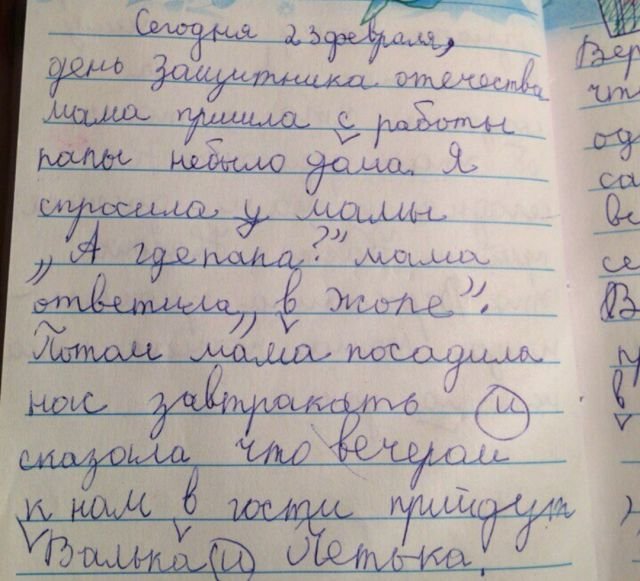 Сегодня 23 февраля,
день защитника отечества
мама пришла с работы
папы небыло дома. Я
спросила у мамы
„А где папа?” мама
ответила „в жопе”.
Потом мама посадила
нас завтракать и
сказала что вечером
к нам в гости прийдут
Валька и Петька.
Вер
что
од
са
ве
се
В
п
в